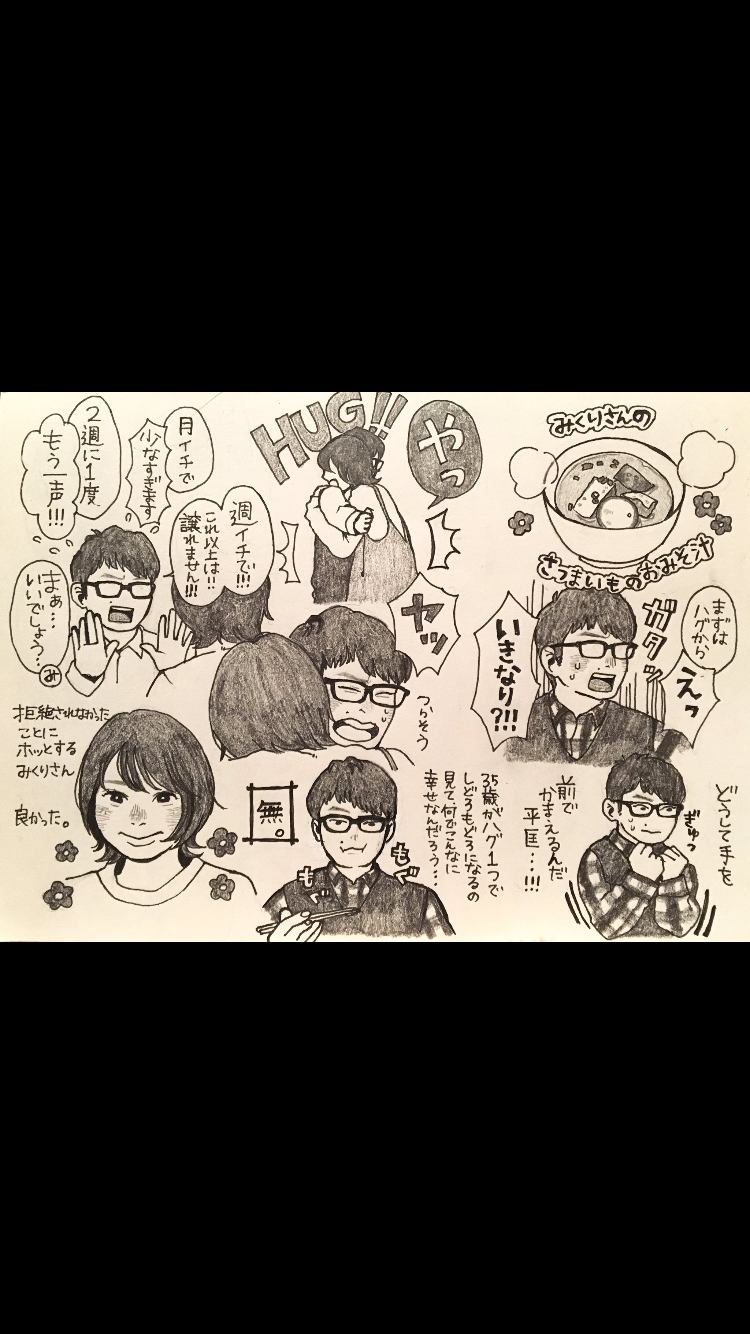 みくりさんの
さつまいものおみそ汁
まずは
ハグから
えっ
ガタッ
いきなり?!!
どうして手を
前で
かまえるんだ
平匡・・・!!!
ぎゅっ
HUG!!
やっ
ヤッ
つらそう
35歳がハグ1つで
しどろもどろになるの
見て、何でこんなに
幸せなんだろう・・・
無。
もぐ
もぐ
月イチで
少なすぎます
2週に1度
もう一声!!!
週イチで!!!
これ以上は!!
譲れません!!!
まぁ…
いいでしょう…
み
拒絶されなかった
ことに
ホッとする
みくりさん
良かった。